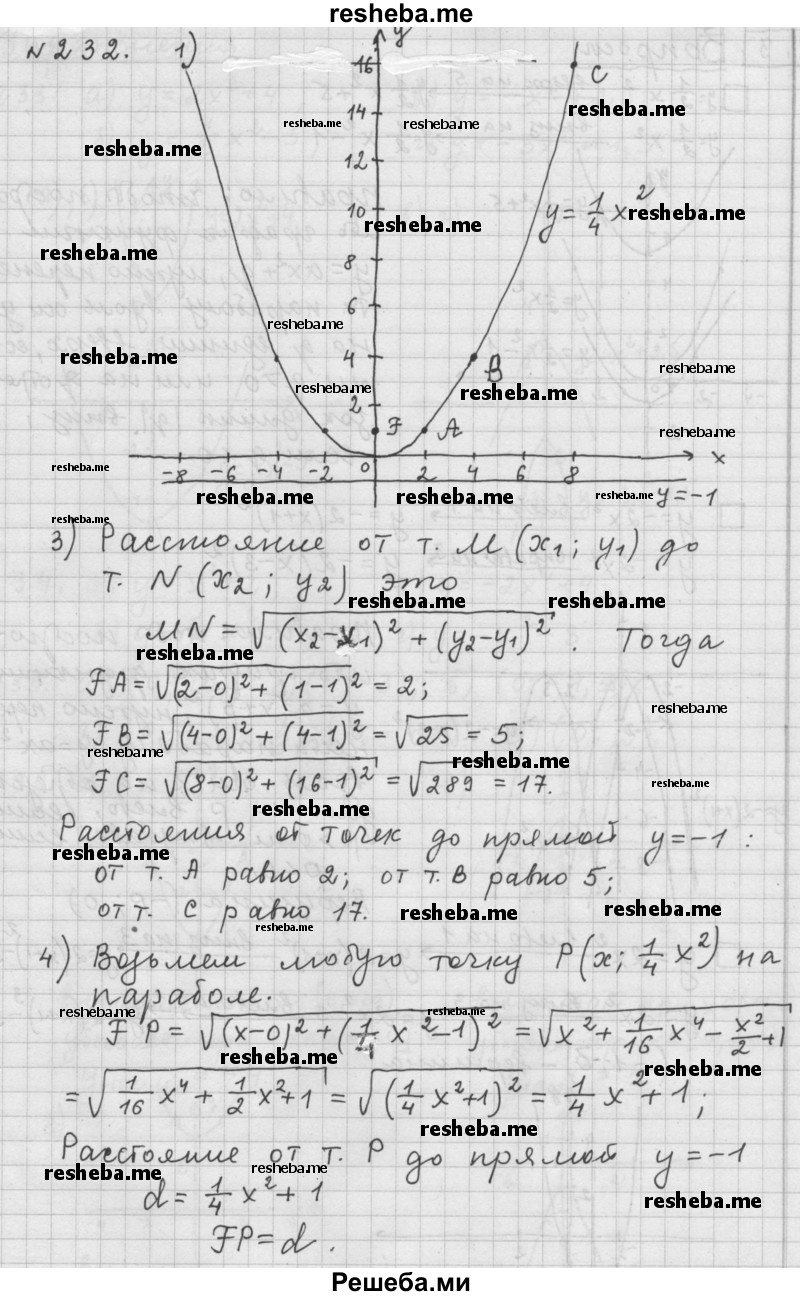 resheba.me
№232. 1)
y
16
C
14
resheba.me
resheba.me
resheba.me
resheba.me
12
10
y = 1/4 x²
resheba.me
resheba.me
resheba.me
8
6
resheba.me
resheba.me
4
B
resheba.me
resheba.me
resheba.me
2
F
A
resheba.me
resheba.me
-8 -6 -4 -2 0 2 4 6 8 x
resheba.me
resheba.me
resheba.me
y=-1
resheba.me
3) Расстояние от т. M (x₁; y₁) до
т. N (x₂; y₂) это
resheba.me
resheba.me
MN = √((x₂-x₁)² + (y₂-y₁)²). Тогда
resheba.me
FA = √((2-0)² + (1-1)²) = 2;
resheba.me
FB = √((4-0)² + (4-1)²) = √25 = 5;
resheba.me
resheba.me
FC = √((8-0)² + (16-1)²) = √289 = 17.
resheba.me
resheba.me
Расстояния от точек до прямой y=-1 :
resheba.me
от т. A равно 2; от т. B равно 5;
от т. C равно 17.
resheba.me
resheba.me
resheba.me
4) Возьмем любую точку P(x; 1/4 x²) на
параболе.
resheba.me
resheba.me
FP = √((x-0)² + (1/4 x²-1)²) = √(x² + 1/16 x⁴ - x²/2 + 1)
resheba.me
resheba.me
= √(1/16 x⁴ + 1/2 x² + 1) = √((1/4 x²+1)²) = 1/4 x² + 1;
resheba.me
Расстояние от т. P до прямой y=-1
resheba.me
resheba.me
d = 1/4 x² + 1
resheba.me
FP = d.
Решеба.ми